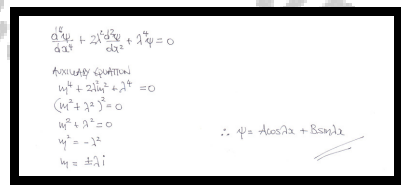 d⁴ψ/dx⁴ + 2λ² d²ψ/dx² + λ⁴ψ = 0
AUXILIARY EQUATION
m⁴ + 2λ²m² + λ⁴ = 0
(m² + λ²)² = 0
m² + λ² = 0
m² = -λ²
m = ±λi
∴ ψ = Acosλx + Bsinλx